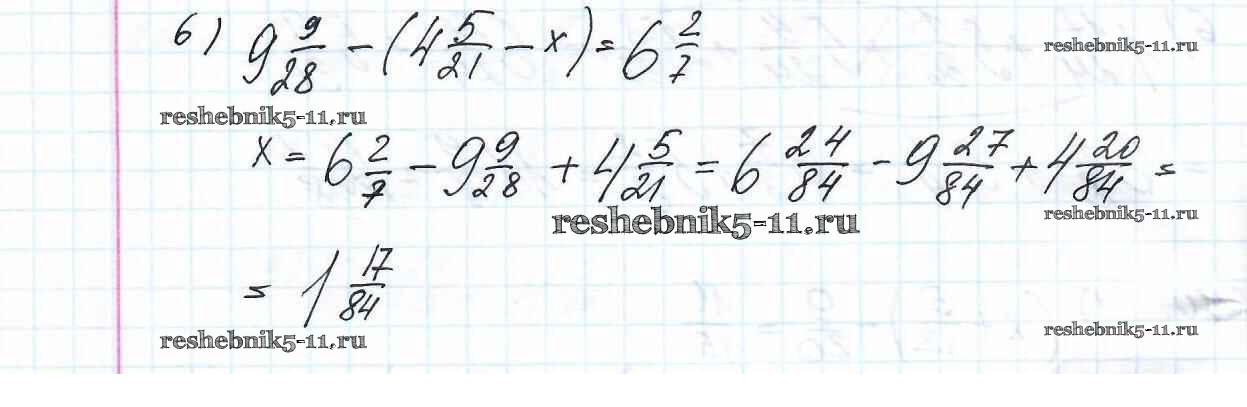 б) 9 9/28 - (4 5/21 - x) = 6 2/7
reshebnik5-11.ru
reshebnik5-11.ru
x = 6 2/7 - 9 9/28 + 4 5/21 = 6 24/84 - 9 27/84 + 4 20/84 =
reshebnik5-11.ru
reshebnik5-11.ru
= 1 17/84
reshebnik5-11.ru
reshebnik5-11.ru